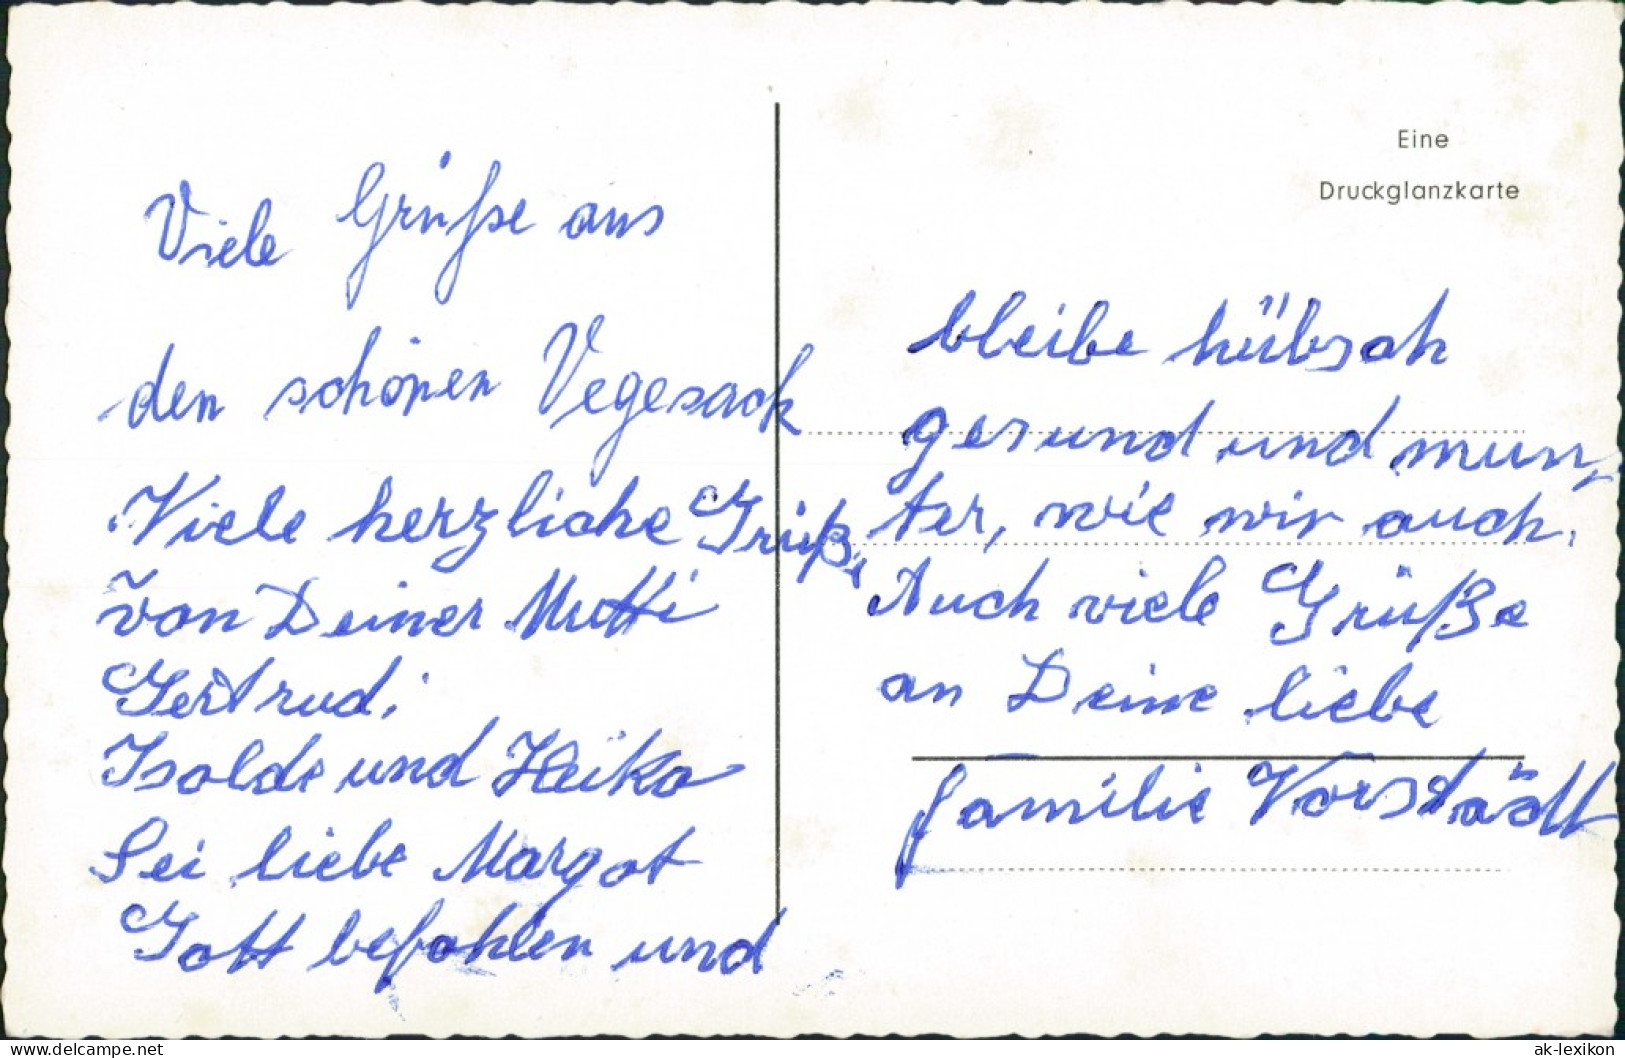 Viele Grüße aus
den schönen Vegesack
Viele herzliche Grüße
von Deiner Mutti
Gertrud,
Isolde und Heiko
Sei liebe Margot
Gott befohlen und
Eine
Druckglanzkarte
bleibe hübsch
gesund und mun-
ter, wie wir auch.
Auch viele Grüße
an Deine liebe
Familie Vorstädt
www.delcampe.net
ak-lexikon